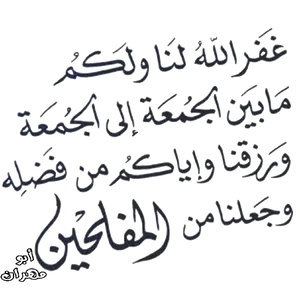 غفر الله لنا ولكم
ما بين الجمعة إلى الجمعة
ورزقنا وإياكم من فضله
وجعلنا من المفلحين
أبو
مهران